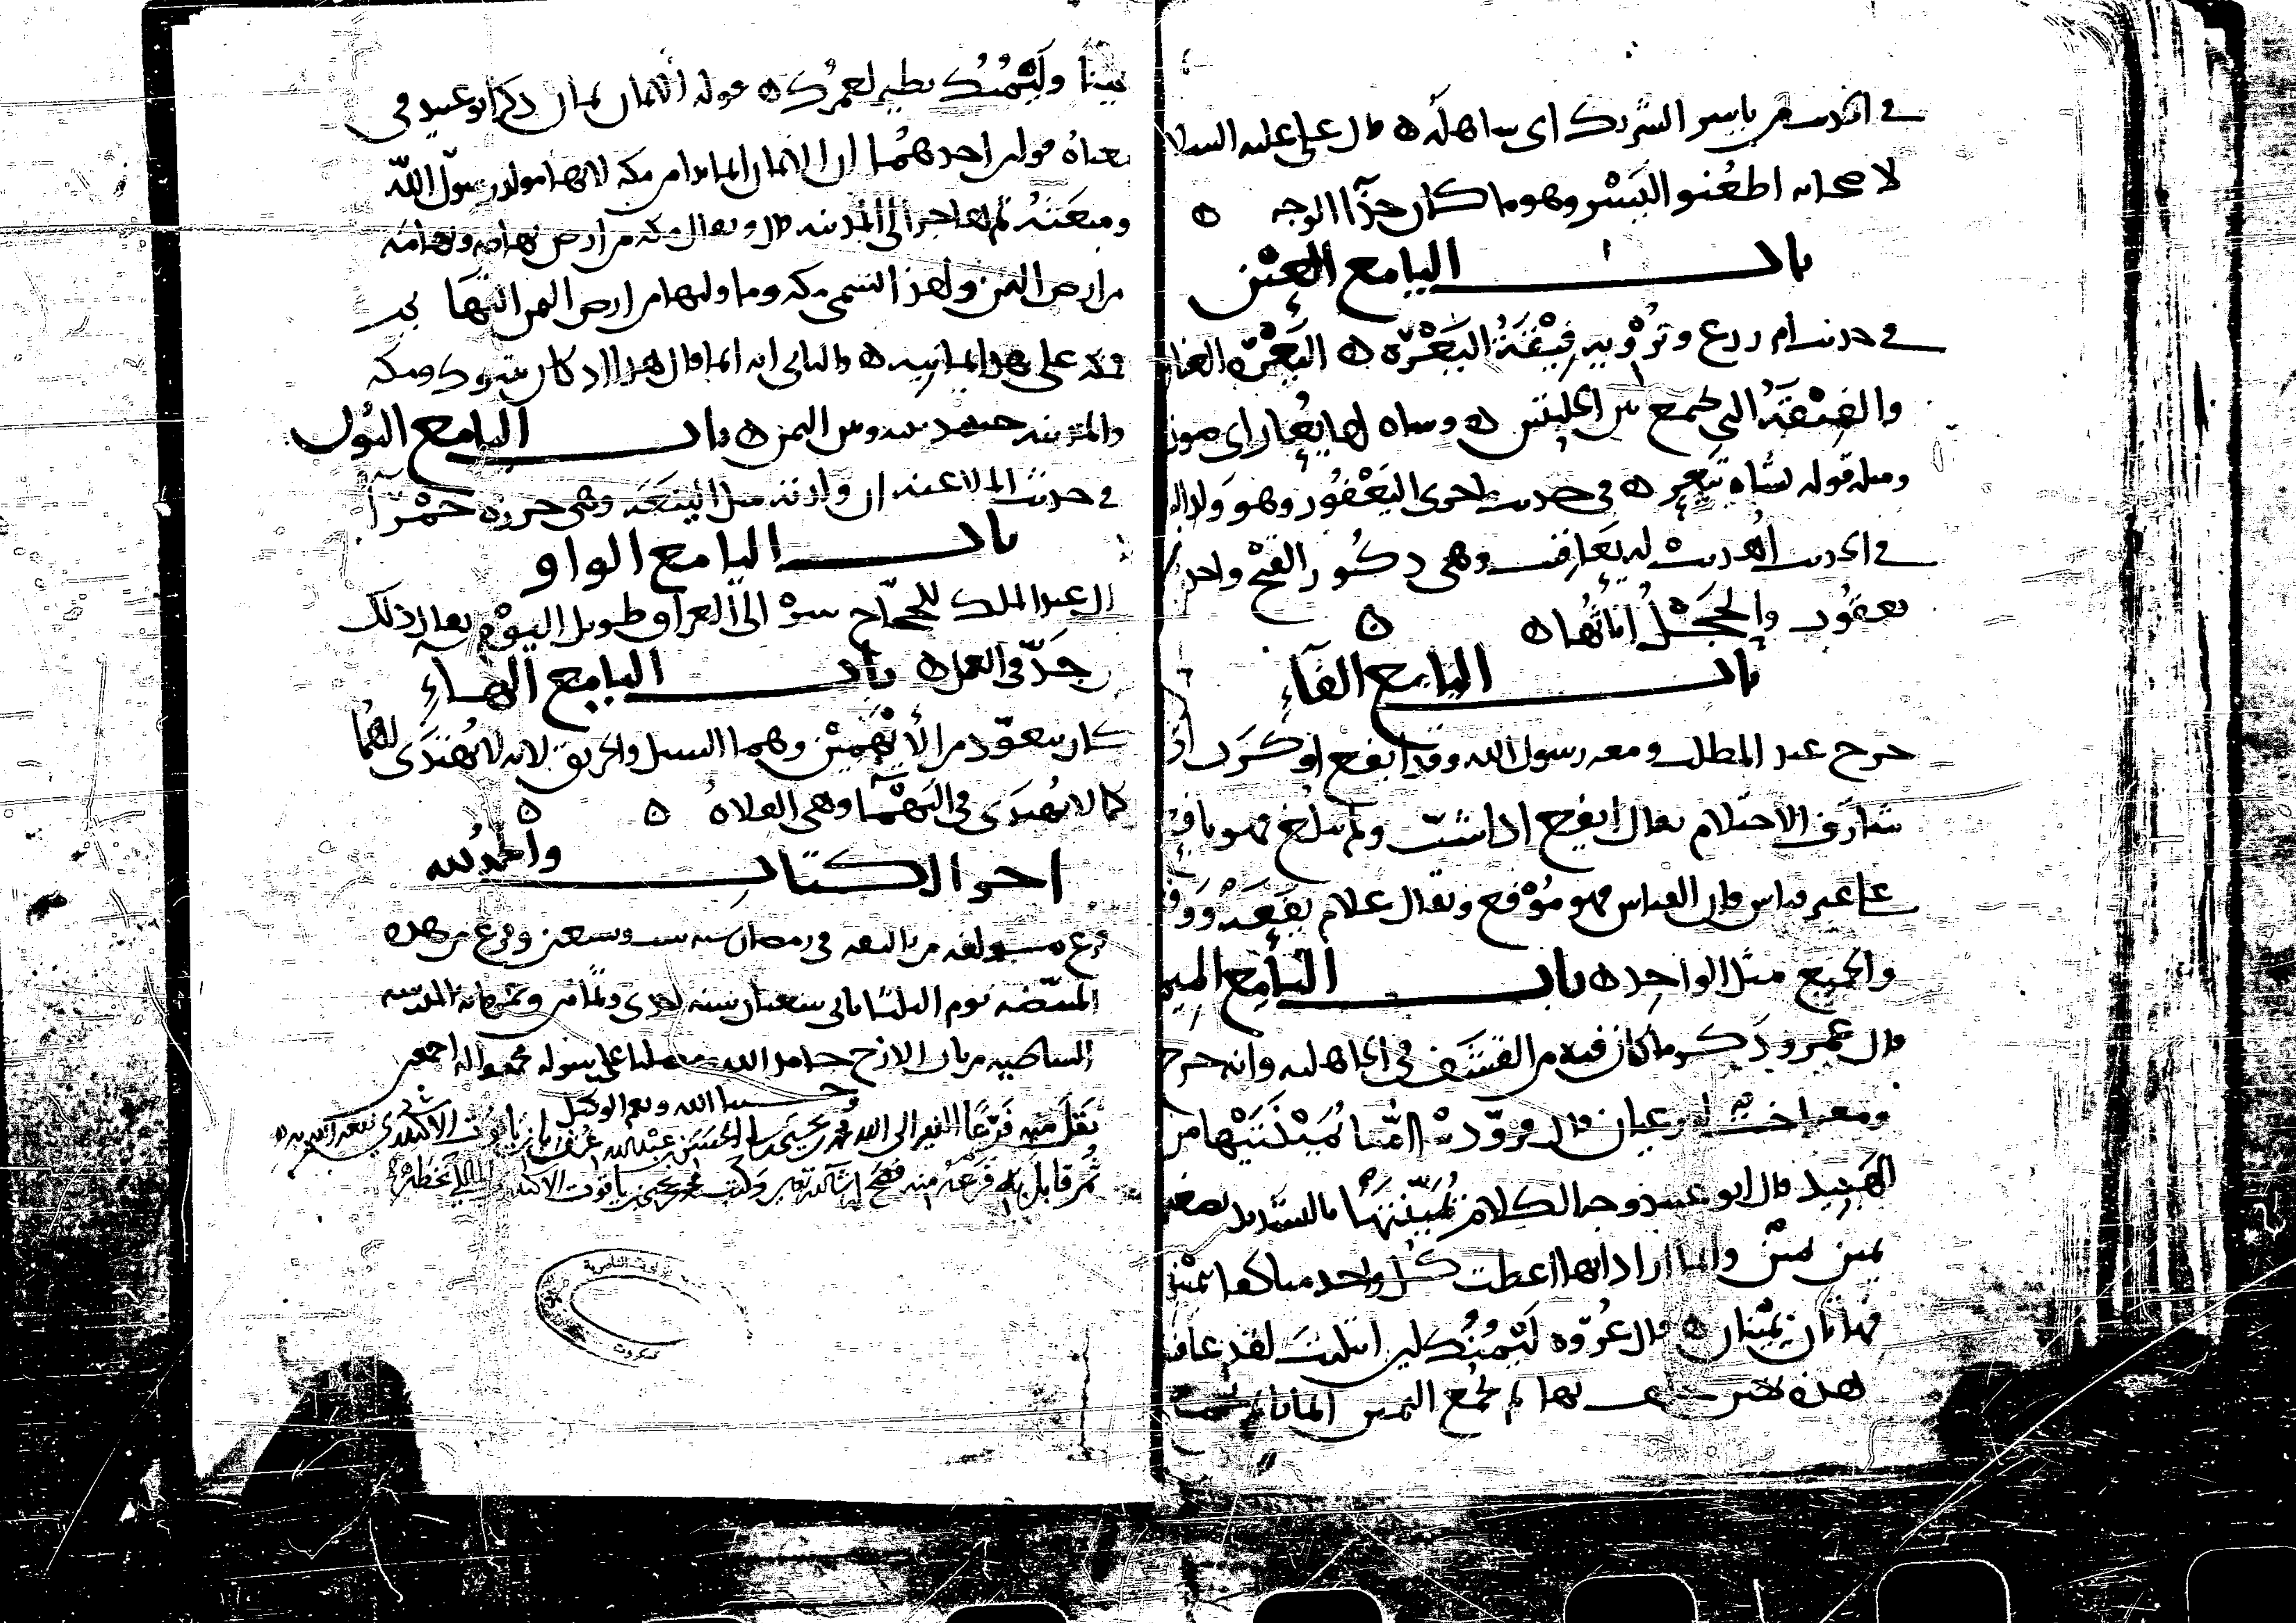 في الحديث من ياسر الشريك اي ساهله ه قال علي عليه السلا
لاصحابه اطعنو اليسر وهو ما كان حذا الوجه ه
باب اليا مع العين
في حديث ام زرع وترويه فيقة اليعرة ه اليعرة العنا
والفيقة التي تجمع بين الحلبتين ه وشاه لها يعار اي صوت
ومثله قوله شاه تيعر ه في حديث اخرى اليعفور وهو ولد ال
في الحديث اهديت له يعاقيب وهي ذكور القبج واحد
يعقوب والحجل اناثها ه ه
باب اليا مع الفآء
خرج عبد المطلب ومعه رسول الله وقد ايفع او كرب اي
شارف الاحتلام يقال ايفع اذا شب ولم يبلغ فهو يافع
على غير قياس وان القياس فهو موفع ويقال غلام يفعة
والجميع مثل الواحد ه باب اليا مع الميم
قال عمر وذكر ما كان فيه من القشف في الجاهلية وانه خرج
واخت له يرعيان قال فزودتنا امنا يمينتيها من
الهبيد قال ابو عبيد وجه الكلام يمينيها بالتشديد تصغير
يمين وانما اراد انها اعطت كل واحد منا كفا بيمينها
فهاتان يمينان ه قال عروة ليمنك لين ابتليت لقد عافيت
هذه يمين بها ثم تجمع اليمين ايمانا ثم
يمينا وليمنك نظير لعمرك ه قوله الايمان يمان ذكر ابو عبيد في
معناه قولين احدهما ان الايمان انما بدا من مكة لانها مولد رسول الله
ومبعثه ثم هاجر الى المدينة قال ويقال مكة من ارض تهامة وتهامة
من ارض اليمن ولهذا تسمى مكة وما وليها من ارض اليمن التهايم
فمكة على هذا يمانية ه والثاني انه انما قال هذا اذ كان بتبوك ومكة
والمدينة حينئذ بينه وبين اليمن ه باب اليا مع النون
في حديث الملاعنة ان ولدته مثل الينعة وهي خرزة حمرآ
باب اليا مع الواو
قال عبد الملك للحجاج سر الى العراق طويل اليوم يقال ذلك
لمن جد في العمل ه باب اليا مع الهاء
كان يتعوذ من الايهمين وهما السيل والحريق لانه لا يهتدى لهما
كما لا يهتدى في اليهما وهي الفلاة ه ه
اخر الكتاب والحمد لله
فرغ مولفه من تاليفه في رمضان سنة ست وسبعين وفرغ من هذه
المبيضة يوم الثلثا ثاني شعبان سنة احدى وثمانين وخمس مائة بالمدرسة
الشاطبية من باب الازج حامدا لله ومصليا على رسوله محمد واله اجمعين
وحسبنا الله ونعم الوكيل
نقل منه فرعا الفقير الى الله محمد بن يحيى بن الحسن بن عبد الله عرف بابن ياقوت الاسكندري
ثم قابل به فرعه منه فصح ان شاء الله تعالى وكتب محمد بن يحيى بن ياقوت الاسكندري المالكي بخطه
الزاوية الناصرية
تمكروت